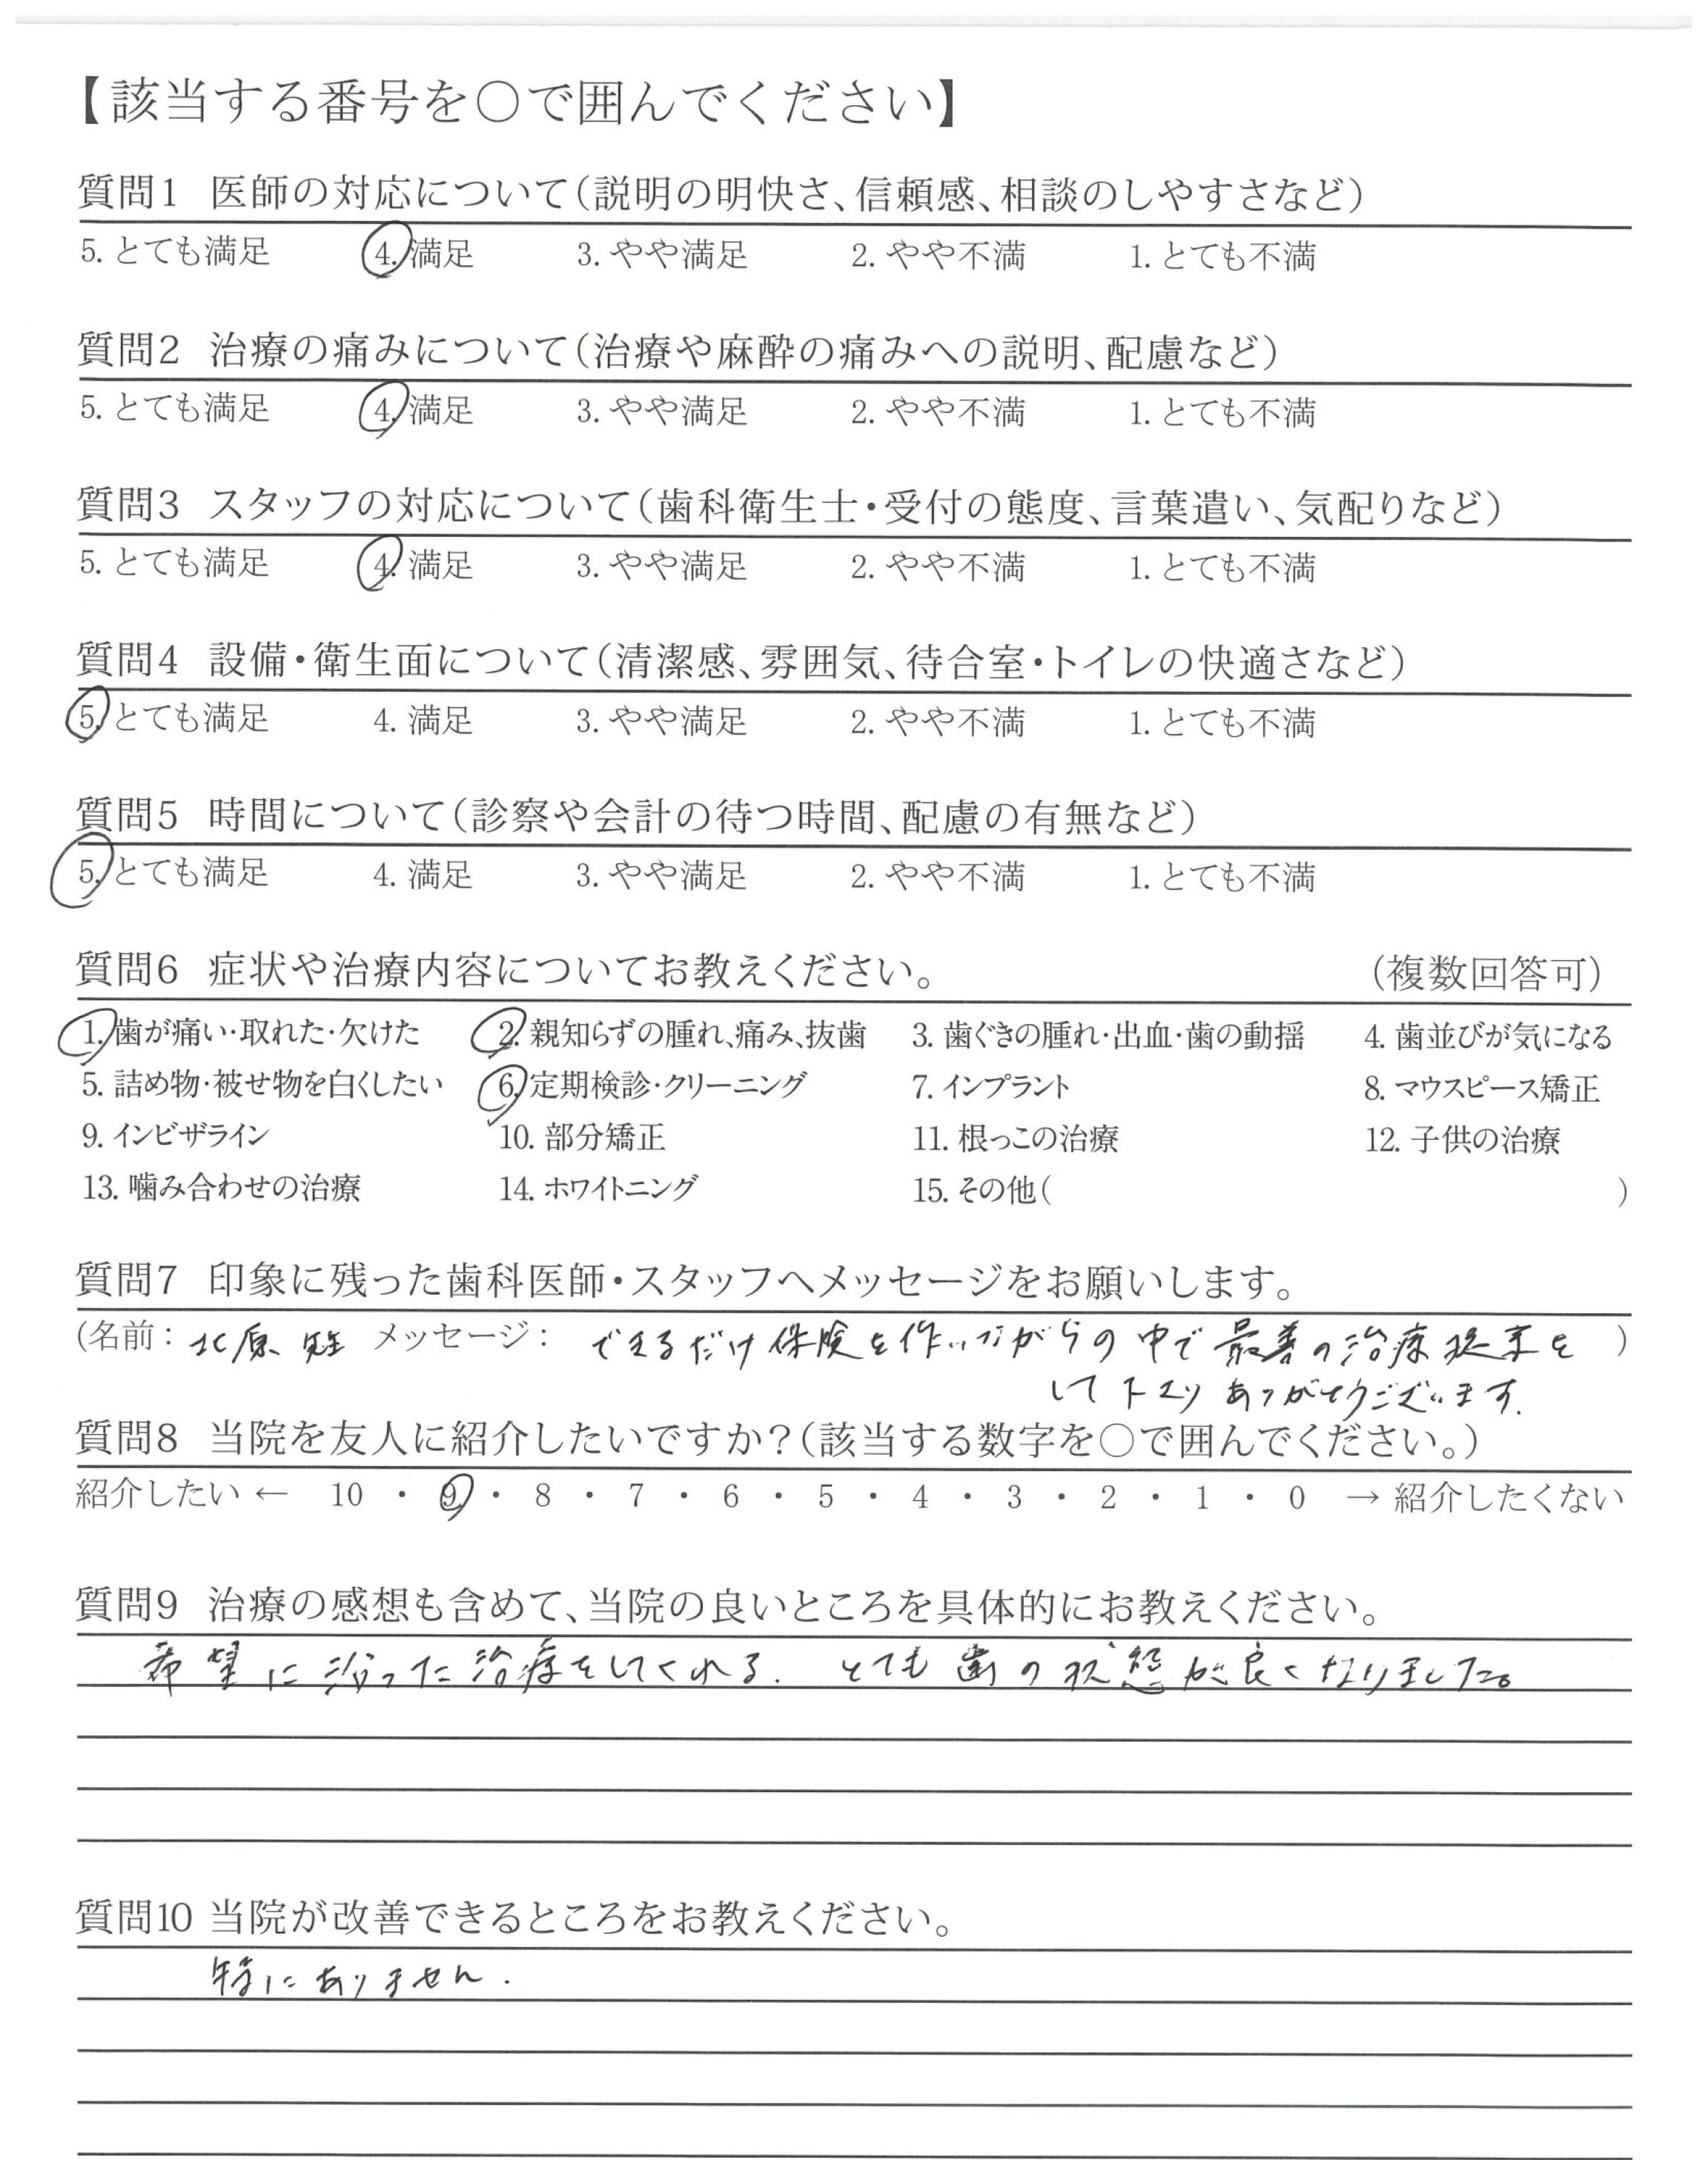 【該当する番号を○で囲んでください】
質問1 医師の対応について(説明の明快さ、信頼感、相談のしやすさなど)
5. とても満足 4. 満足 3. やや満足 2. やや不満 1. とても不満
質問2 治療の痛みについて(治療や麻酔の痛みへの説明、配慮など)
5. とても満足 4. 満足 3. やや満足 2. やや不満 1. とても不満
質問3 スタッフの対応について(歯科衛生士・受付の態度、言葉遣い、気配りなど)
5. とても満足 4. 満足 3. やや満足 2. やや不満 1. とても不満
質問4 設備・衛生面について(清潔感、雰囲気、待合室・トイレの快適さなど)
5. とても満足 4. 満足 3. やや満足 2. やや不満 1. とても不満
質問5 時間について(診察や会計の待つ時間、配慮の有無など)
5. とても満足 4. 満足 3. やや満足 2. やや不満 1. とても不満
質問6 症状や治療内容についてお教えください。 (複数回答可)
1. 歯が痛い・取れた・欠けた 2. 親知らずの腫れ、痛み、抜歯 3. 歯ぐきの腫れ・出血・歯の動揺 4. 歯並びが気になる
5. 詰め物・被せ物を白くしたい 6. 定期検診・クリーニング 7. インプラント 8. マウスピース矯正
9. インビザライン 10. 部分矯正 11. 根っこの治療 12. 子供の治療
13. 噛み合わせの治療 14. ホワイトニング 15. その他( )
質問7 印象に残った歯科医師・スタッフへメッセージをお願いします。
(名前: 北原 先生 メッセージ: できるだけ保険を使いながらの中で最善の治療提案を )
して下さり ありがとうございます.
質問8 当院を友人に紹介したいですか?(該当する数字を○で囲んでください。)
紹介したい ← 10 ・ 9 ・ 8 ・ 7 ・ 6 ・ 5 ・ 4 ・ 3 ・ 2 ・ 1 ・ 0 → 紹介したくない
質問9 治療の感想も含めて、当院の良いところを具体的にお教えください。
希望に沿った治療をしてくれる. とても歯の状態が良くなりました。
質問10 当院が改善できるところをお教えください。
特にありません.